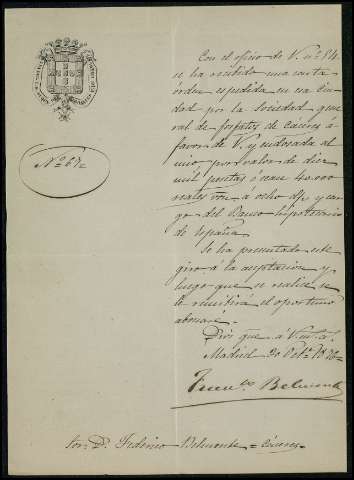 Nº 672
Con el oficio de V. nº 84
se ha recibido una carta
órden espedida en esa Ciu-
dad por la Sociedad gene
ral de fosfatos de Cáceres á
favor de V. y endosada al
mio por valor de diez
mil pesetas ó sean 40.000
reales von á ocho d/v y car-
go del Banco hipotecario
de España.
Se ha presentado este
giro á la aceptacion y
luego que se realice se
le remitirá el oportuno
abonaré.
Dios gue á V. m. a.
Madrid 30 Oct.e 1876
Belmonte
Sor. D. Federico Belmonte = Cáceres =